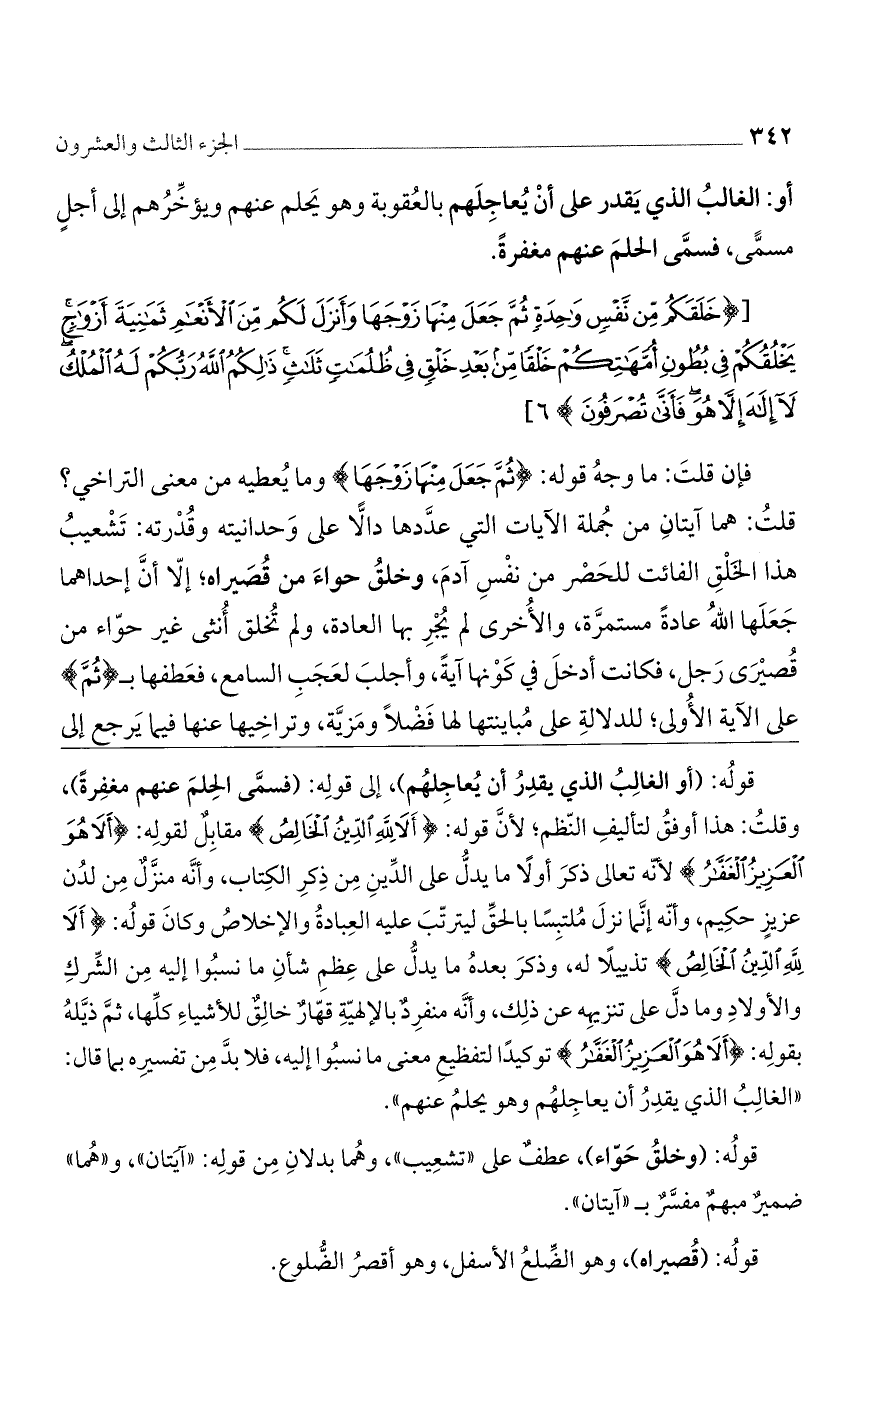 ٣٤٢ الجزء الثالث والعشرون
أو: الغالبُ الذي يَقدر على أنْ يُعاجِلَهم بالعُقوبة وهو يَحلم عنهم ويؤخِّرُهم إلى أجلٍ
مسمًّى، فسمَّى الحلمَ عنهم مغفرةً.
[﴿خَلَقَكُم مِّن نَّفْسٍ وَٰحِدَةٍ ثُمَّ جَعَلَ مِنْهَا زَوْجَهَا وَأَنزَلَ لَكُم مِّنَ ٱلْأَنْعَٰمِ ثَمَٰنِيَةَ أَزْوَٰجٍۚ
يَخْلُقُكُمْ فِي بُطُونِ أُمَّهَٰتِكُمْ خَلْقًا مِّنۢ بَعْدِ خَلْقٍ فِي ظُلُمَٰتٍ ثَلَٰثٍۚ ذَٰلِكُمُ ٱللَّهُ رَبُّكُمْ لَهُ ٱلْمُلْكُۖ
لَآ إِلَٰهَ إِلَّا هُوَۖ فَأَنَّىٰ تُصْرَفُونَ﴾ ٦]
فإن قلتَ: ما وجهُ قوله: ﴿ثُمَّ جَعَلَ مِنْهَا زَوْجَهَا﴾ وما يُعطيه من معنى التراخي؟
قلتُ: هما آيتانِ من جُملة الآيات التي عدَّدها دالًّا على وَحدانيته وقُدْرته: تَشْعيبُ
هذا الخَلْقِ الفائت للحَصْر من نفْسِ آدمَ، وخلقُ حواءَ من قُصَيراه؛ إلّا أنَّ إحداهما
جَعَلَها اللهُ عادةً مستمرَّة، والأُخرى لم يُجْرِ بها العادة، ولم تُخلق أُنثى غير حوّاء من
قُصيْرَى رَجل، فكانت أدخلَ في كَوْنها آيةً، وأجلبَ لعَجَبِ السامع، فعَطفها بـ﴿ثُمَّ﴾
على الآية الأُولى؛ للدلالةِ على مُباينتها لها فَضْلاً ومَزيَّة، وتراخِيها عنها فيما يَرجع إلى
قولُه: (أو الغالِبُ الذي يقدِرُ أن يُعاجِلهُم)، إلى قولِه: (فسمَّى الحِلمَ عنهم مغفِرةً)،
وقلتُ: هذا أوفقُ لتأليفِ النَّظم؛ لأنَّ قوله: ﴿أَلَا لِلَّهِ ٱلدِّينُ ٱلْخَالِصُ﴾ مقابِلٌ لقولِه: ﴿أَلَا هُوَ
ٱلْعَزِيزُ ٱلْغَفَّٰرُ﴾ لأنّه تعالى ذكرَ أولًا ما يدلُّ على الدِّينِ مِن ذِكرِ الكِتاب، وأنَّه منزَّلٌ مِن لدُن
عزيزٍ حكِيم، وأنّه إنَّما نزلَ مُلتبِسًا بالحقِّ ليترتّبَ عليه العِبادةُ والإخلاصُ وكانَ قولُه: ﴿أَلَا
لِلَّهِ ٱلدِّينُ ٱلْخَالِصُ﴾ تذييلًا له، وذكرَ بعدهُ ما يدلُّ على عِظمِ شأنِ ما نسبُوا إليه مِن الشِّركِ
والأولادِ وما دلَّ على تنزيهِه عن ذلِك، وأنَّه منفرِدٌ بالإلهيّةِ قهّارٌ خالِقٌ للأشياءِ كلِّها، ثمَّ ذيَّلهُ
بقولِه: ﴿أَلَا هُوَ ٱلْعَزِيزُ ٱلْغَفَّٰرُ﴾ توكيدًا لتفظيعِ معنى ما نسبُوا إليه، فلا بدَّ مِن تفسيرِه بما قال:
«الغالِبُ الذي يقدِرُ أن يعاجِلهُم وهو يحلمُ عنهم».
قولُه: (وخلقُ حَوّاء)، عطفٌ على «تشعِيب»، وهُما بدلانِ مِن قولِه: «آيَتان»، و«هُما»
ضميرٌ مبهمٌ مفسَّرٌ بـ «آيتان».
قولُه: (قُصيراه)، وهو الضِّلعُ الأسفل، وهو أقصرُ الضُّلوع.